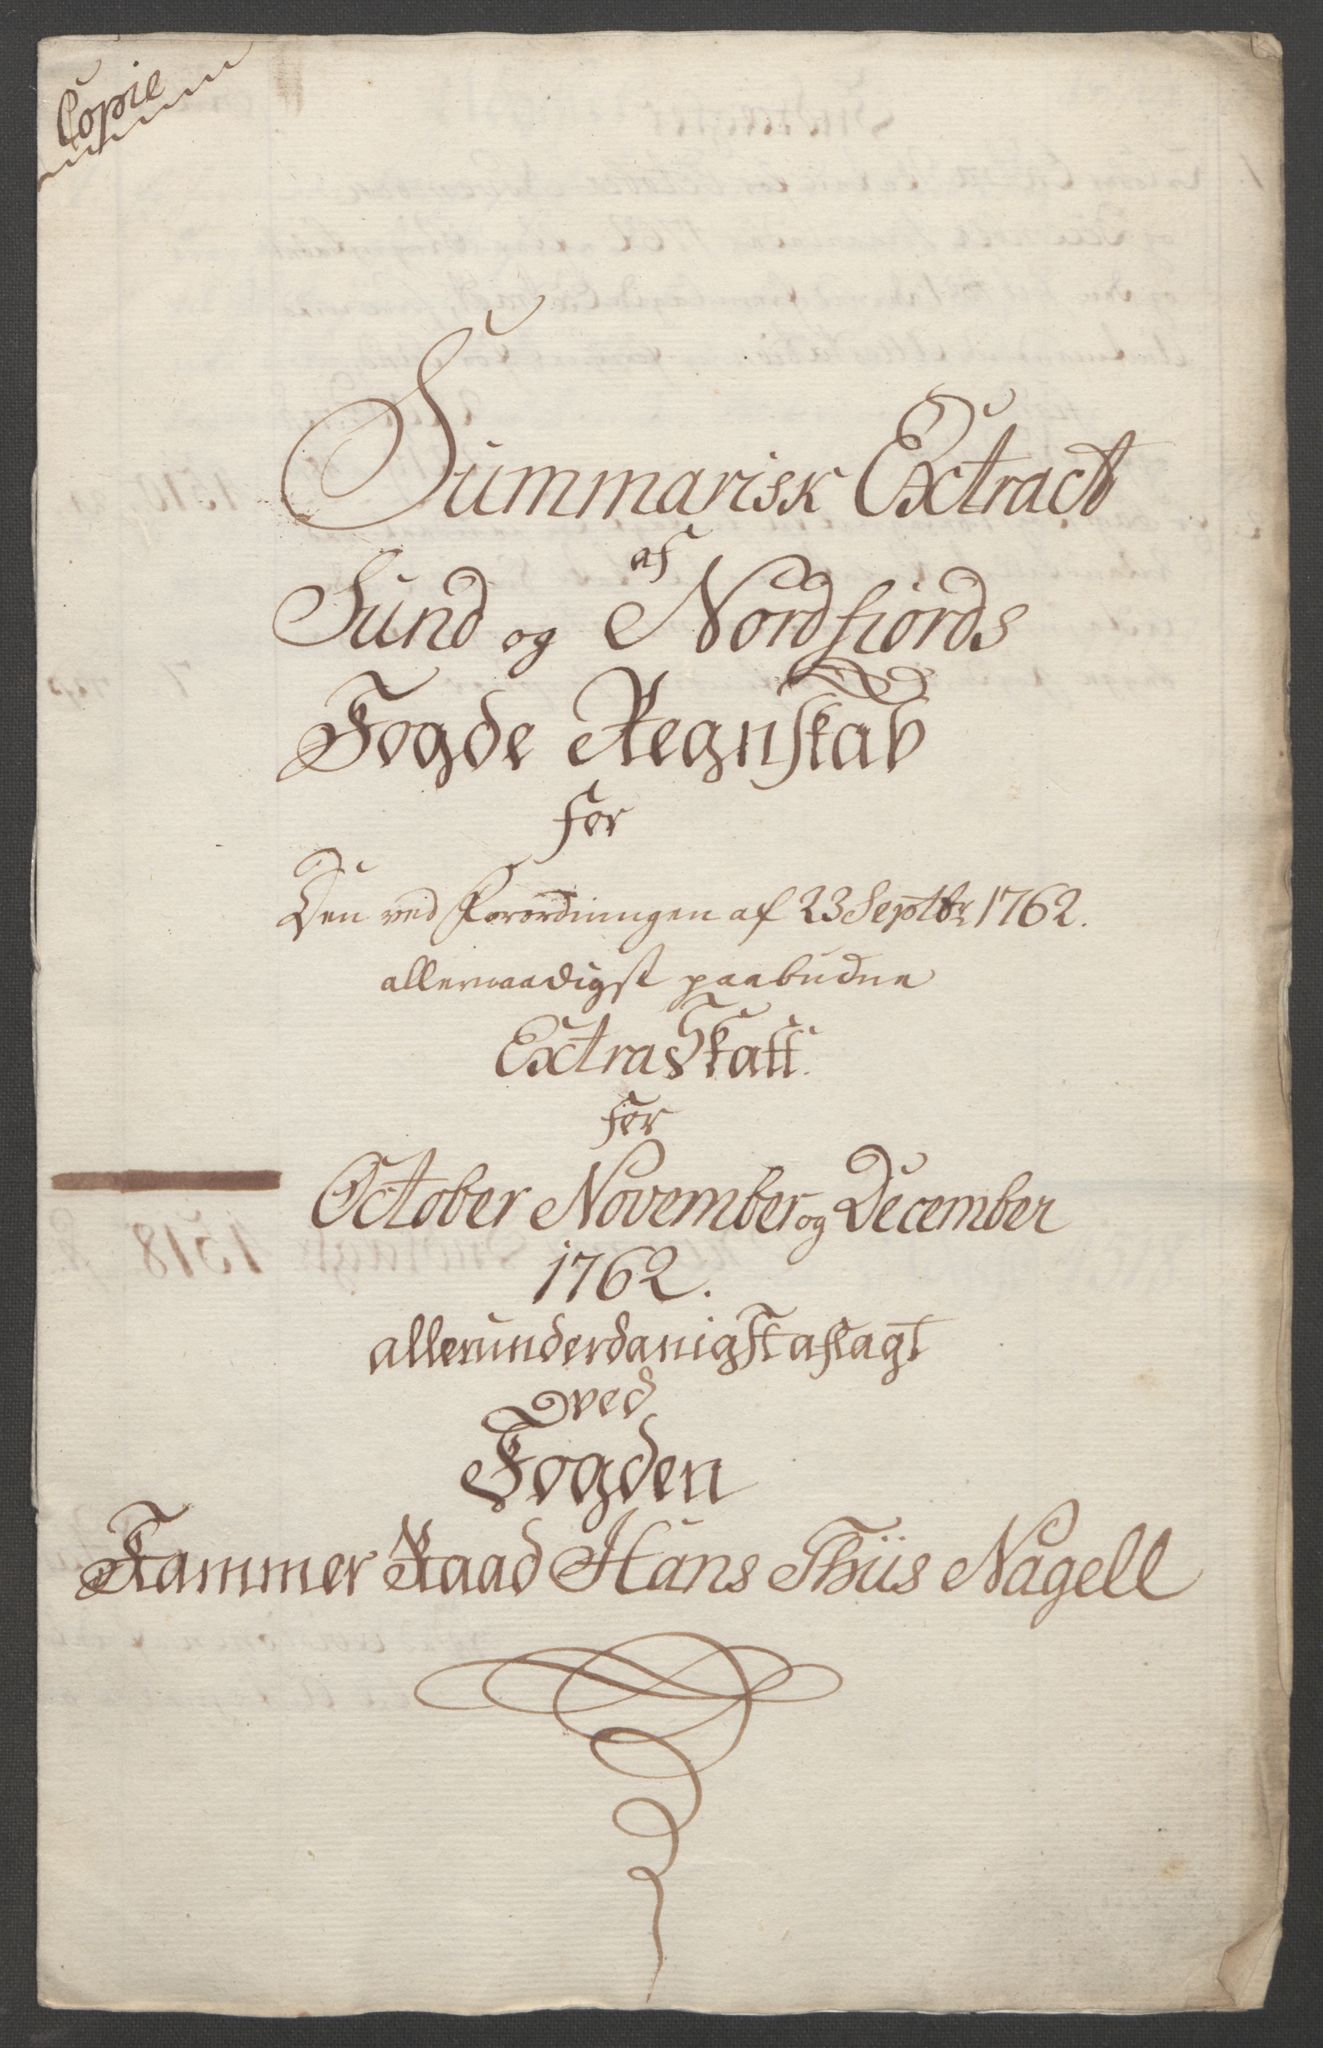 Copie
Summarisk Extract
af
Sund og Nordfiords
Fogde Regnskab
for
Den ved Forordningen af 23 Septbr 1762.
allernaadigst paabudne
Extra Skatt.
for
October November og December
1762.
allerunderdanigst aflagt
ved
Fogden
Kammer Raad Hans Thiis Nagell